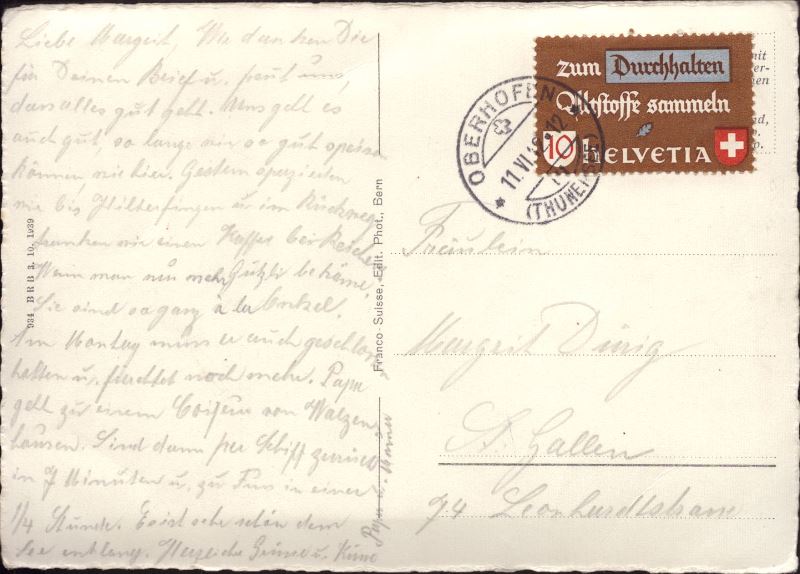 Liebe Margrit, Wir danken Dir
für Deinen Brief u. freut uns,
dass alles gut geht. Uns geht es
auch gut, so lange wir so gut
können, wie hier. Gestern spazierten
wir bis Hilterfingen u. im Rückweg
tranken wir einen Kaffee bei
Wenn man nur mehr Gützli bekäme,
Sie sind so ganz à la
Am Montag muss er auch geschlossen
halten u. fürchtet noch mehr. Papa
geht zu einem Coiffeur von Walzen-
hausen. Sind dann per Schiff zurück
in 7 Minuten u. zu Fuss in einer
1/4 Stunde. Es ist sehr schön dem
See entlang. Herzliche Grüsse u. Küsse
Papa u. Mama
934 BRB 3. 10. 1939
Franco-Suisse, Edit. Phot., Bern
zum Durchhalten
Altstoffe sammeln
10 HELVETIA
OBERHOFEN
11.VI.
(THUNERSEE)
mit
Fräulein
Margrit
St. Gallen
74 Leonhardtstrasse